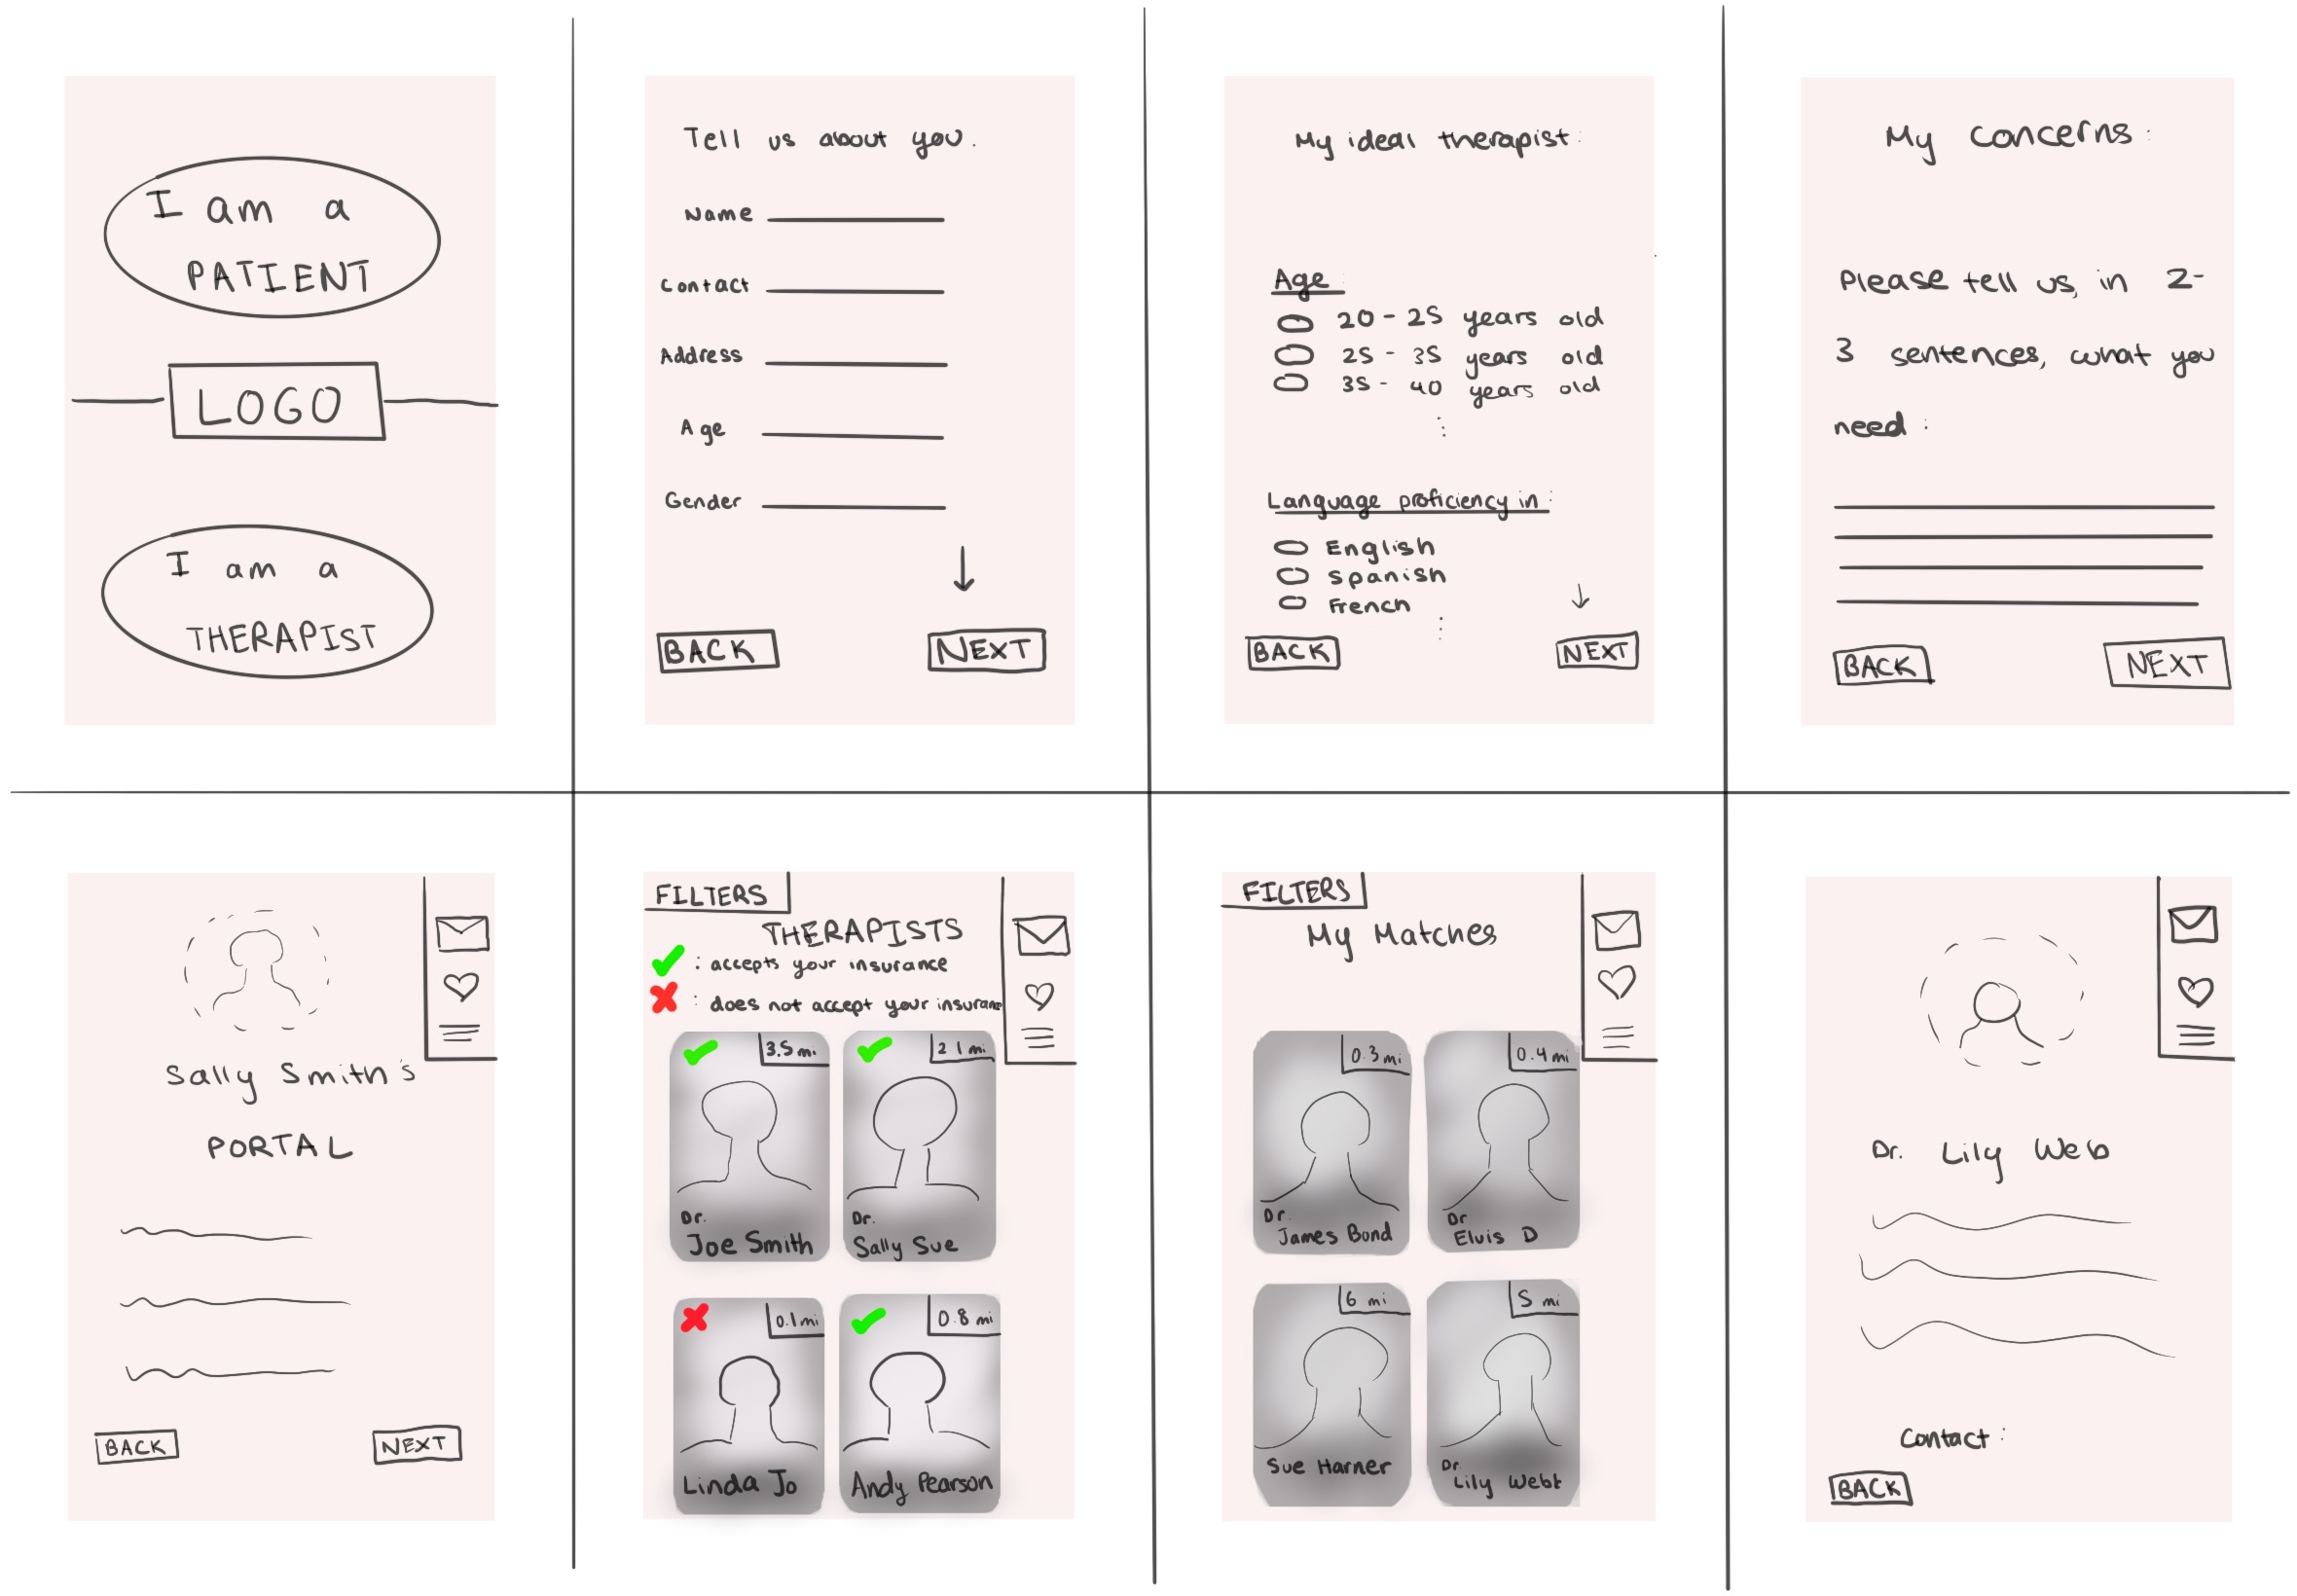 I am a
PATIENT
LOGO
I am a
THERAPIST
Tell us about you.
Name
Contact
Address
Age
Gender
BACK
NEXT
My ideal therapist:
Age:
20 - 25 years old
25 - 35 years old
35 - 40 years old
Language proficiency in:
English
Spanish
French
BACK
NEXT
My concerns:
Please tell us, in 2-
3 sentences, what you
need:
BACK
NEXT
Sally Smith's
PORTAL
BACK
NEXT
FILTERS
THERAPISTS
: accepts your insurance
: does not accept your insuran
3.5 mi
2.1 mi
Dr.
Joe Smith
Dr.
Sally Sue
0.1 mi
0.8 mi
Linda Jo
Andy Pearson
FILTERS
My Matches
0.3 mi
0.4 mi
Dr.
James Bond
Dr
Elvis D
6 mi
5 mi
Sue Harner
Dr.
Lily Webb
Dr. Lily Web
Contact:
BACK